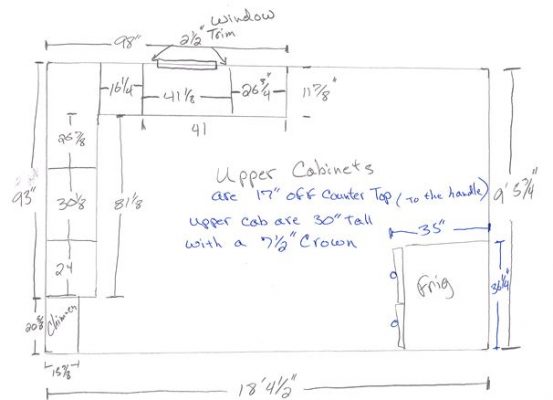 Window
98" 2½" Trim
16¼ 41⅛ 26¾" 11⅞"
26⅞ 41
Upper Cabinets
93" 30⅛ 81⅛ are 17" off Counter Top (To the handle) 9' 5¾"
upper cab are 30" Tall
with a 7½" Crown 35"
24 Frig 36¼"
Chimney
15⅞
18' 4½"